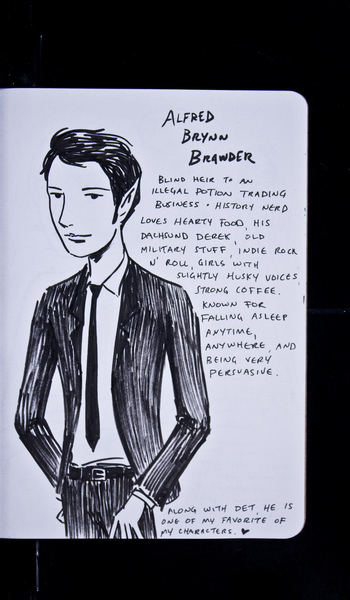 ALFRED
BRYNN
BRAWDER
BLIND HEIR TO AN
ILLEGAL POTION TRADING
BUSINESS • HISTORY NERD
LOVES HEARTY FOOD, HIS
DACHSUND DEREK, OLD
MILITARY STUFF, INDIE ROCK
N' ROLL, GIRLS WITH
SLIGHTLY HUSKY VOICES,
STRONG COFFEE.
KNOWN FOR
FALLING ASLEEP
ANYTIME,
ANYWHERE, AND
BEING VERY
PERSUASIVE.
ALONG WITH DET, HE IS
ONE OF MY FAVORITE OF
MY CHARACTERS. ♥